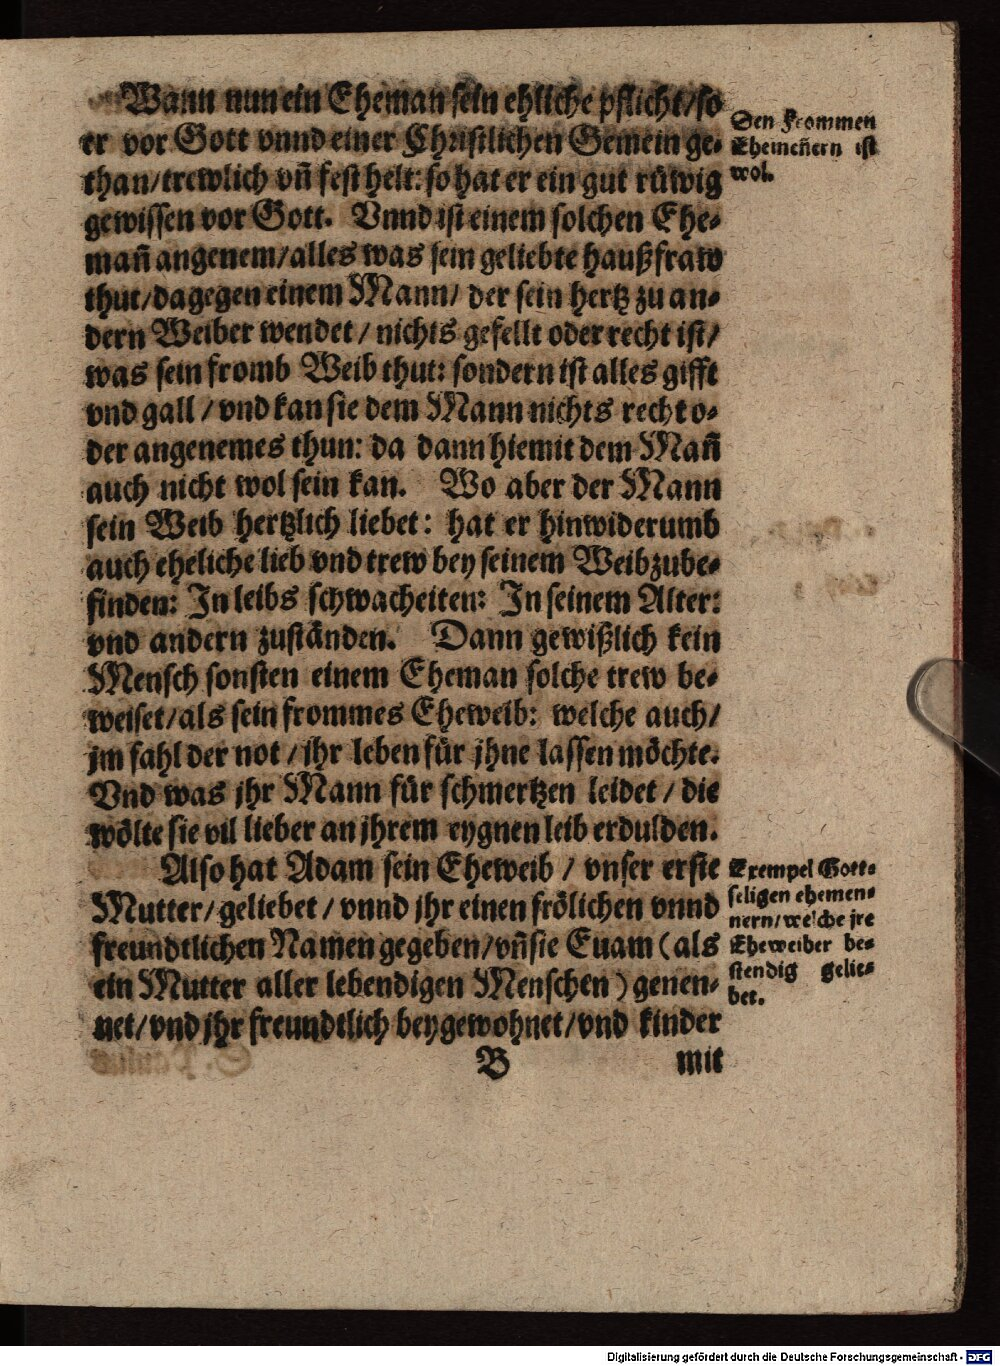 Wann nun ein Eheman sein ehliche pflicht/ so
er vor Gott vnnd einer Christlichen Gemein ge-
than/ trewlich vñ fest helt: so hat er ein gut rüwig
gewissen vor Gott. Vnnd ist einem solchen Ehe-
mañ angenem/ alles was sein geliebte haußfraw
thut/ dagegen einem Mann/ der sein hertz zu an-
dern Weiber wendet/ nichts gefellt oder recht ist/
was sein fromb Weib thut: sondern ist alles gifft
vnd gall/ vnd kan sie dem Mann nichts recht o-
der angenemes thun: da dann hiemit dem Mañ
auch nicht wol sein kan. Wo aber der Mann
sein Weib hertzlich liebet: hat er hinwiderumb
auch eheliche lieb vnd trew bey seinem Weib zube-
finden: In leibs schwacheiten: In seinem Alter:
vnd andern zuständen. Dann gewißlich kein
Mensch sonsten einem Eheman solche trew be-
weiset/ als sein frommes Eheweib: welche auch/
jm fahl der not/ jhr leben für jhne lassen möchte.
Vnd was jhr Mann für schmertzen leidet/ die
wölte sie vil lieber an jhrem eygnen leib erdulden.
Also hat Adam sein Eheweib/ vnser erste
Mutter/ geliebet/ vnnd jhr einen frölichen vnnd
freundtlichen Namen gegeben/ vñ sie Euam (als
ein Mutter aller lebendigen Menschen) genen-
net/ vnd jhr freundtlich beygewohnet/ vnd kinder
B mit
Den frommen
Ehemeñern ist
wol.
Exempel Gott-
seligen ehemen-
nern/ welche jre
Eheweiber be-
stendig gelie-
bet.
Digitalisierung gefördert durch die Deutsche Forschungsgemeinschaft - DFG